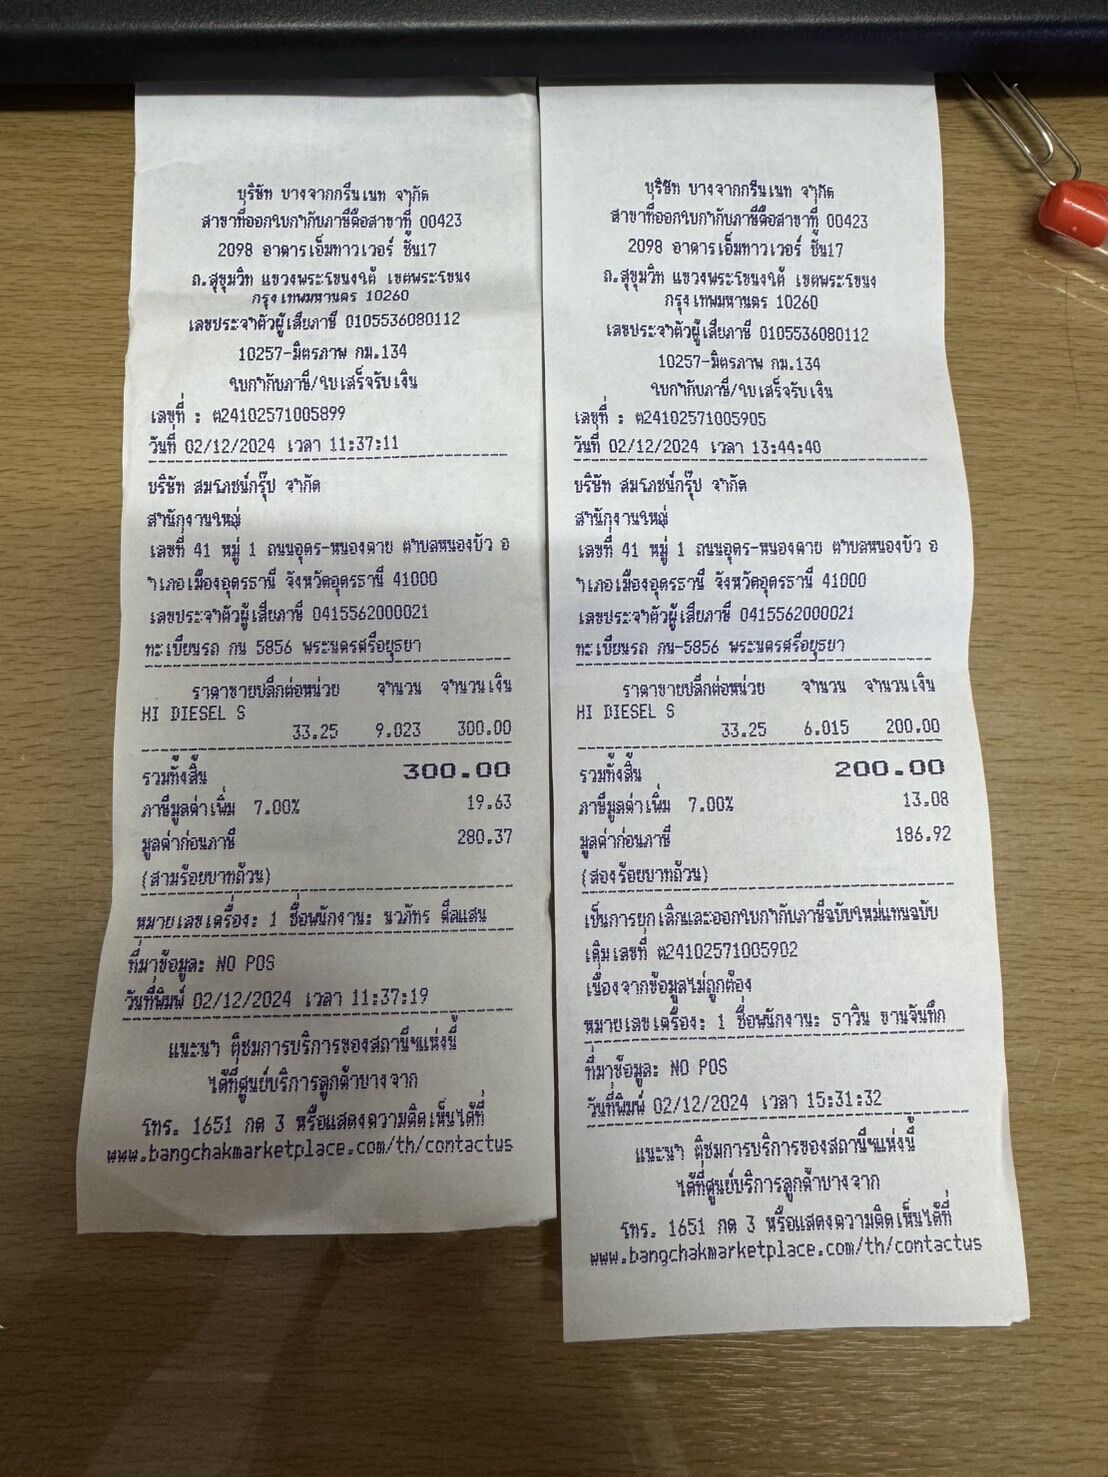 บริษัท บางจากกรีนเนท จำกัด
สาขาที่ออกใบกำกับภาษีคือสาขาที่ 00423
2098 อาคารเอ็มทาวเวอร์ ชั้น17
ถ.สุขุมวิท แขวงพระโขนงใต้ เขตพระโขนง
กรุงเทพมหานคร 10260
เลขประจำตัวผู้เสียภาษี 0105536080112
10257-มิตรภาพ กม.134
ใบกำกับภาษี/ใบเสร็จรับเงิน
เลขที่ : ต24102571005899
วันที่ 02/12/2024 เวลา 11:37:11
บริษัท สมโภชน์กรุ๊ป จำกัด
สำนักงานใหญ่
เลขที่ 41 หมู่ 1 ถนนอุดร-หนองคาย ตำบลหนองบัว อ
ำเภอเมืองอุดรธานี จังหวัดอุดรธานี 41000
เลขประจำตัวผู้เสียภาษี 0415562000021
ทะเบียนรถ กน 5856 พระนครศรีอยุธยา
ราคาขายปลีกต่อหน่วย จำนวน จำนวนเงิน
HI DIESEL S
33.25 9.023 300.00
รวมทั้งสิ้น 300.00
ภาษีมูลค่าเพิ่ม 7.00% 19.63
มูลค่าก่อนภาษี 280.37
(สามร้อยบาทถ้วน)
หมายเลขเครื่อง: 1 ชื่อพนักงาน: นวภัทร ศีลแสน
ที่มาข้อมูล: NO POS
วันที่พิมพ์ 02/12/2024 เวลา 11:37:19
แนะนำ ติชมการบริการของสถานีฯแห่งนี้
ได้ที่ศูนย์บริการลูกค้าบางจาก
โทร. 1651 กด 3 หรือแสดงความคิดเห็นได้ที่
www.bangchakmarketplace.com/th/contactus
บริษัท บางจากกรีนเนท จำกัด
สาขาที่ออกใบกำกับภาษีคือสาขาที่ 00423
2098 อาคารเอ็มทาวเวอร์ ชั้น17
ถ.สุขุมวิท แขวงพระโขนงใต้ เขตพระโขนง
กรุงเทพมหานคร 10260
เลขประจำตัวผู้เสียภาษี 0105536080112
10257-มิตรภาพ กม.134
ใบกำกับภาษี/ใบเสร็จรับเงิน
เลขที่ : ต24102571005905
วันที่ 02/12/2024 เวลา 13:44:40
บริษัท สมโภชน์กรุ๊ป จำกัด
สำนักงานใหญ่
เลขที่ 41 หมู่ 1 ถนนอุดร-หนองคาย ตำบลหนองบัว อ
ำเภอเมืองอุดรธานี จังหวัดอุดรธานี 41000
เลขประจำตัวผู้เสียภาษี 0415562000021
ทะเบียนรถ กน-5856 พระนครศรีอยุธยา
ราคาขายปลีกต่อหน่วย จำนวน จำนวนเงิน
HI DIESEL S
33.25 6.015 200.00
รวมทั้งสิ้น 200.00
ภาษีมูลค่าเพิ่ม 7.00% 13.08
มูลค่าก่อนภาษี 186.92
(สองร้อยบาทถ้วน)
เป็นการยกเลิกและออกใบกำกับภาษีฉบับใหม่แทนฉบับ
เดิมเลขที่ ต24102571005902
เนื่องจากข้อมูลไม่ถูกต้อง
หมายเลขเครื่อง: 1 ชื่อพนักงาน: ธาวิน ขานจันทึก
ที่มาข้อมูล: NO POS
วันที่พิมพ์ 02/12/2024 เวลา 15:31:32
แนะนำ ติชมการบริการของสถานีฯแห่งนี้
ได้ที่ศูนย์บริการลูกค้าบางจาก
โทร. 1651 กด 3 หรือแสดงความคิดเห็นได้ที่
www.bangchakmarketplace.com/th/contactus